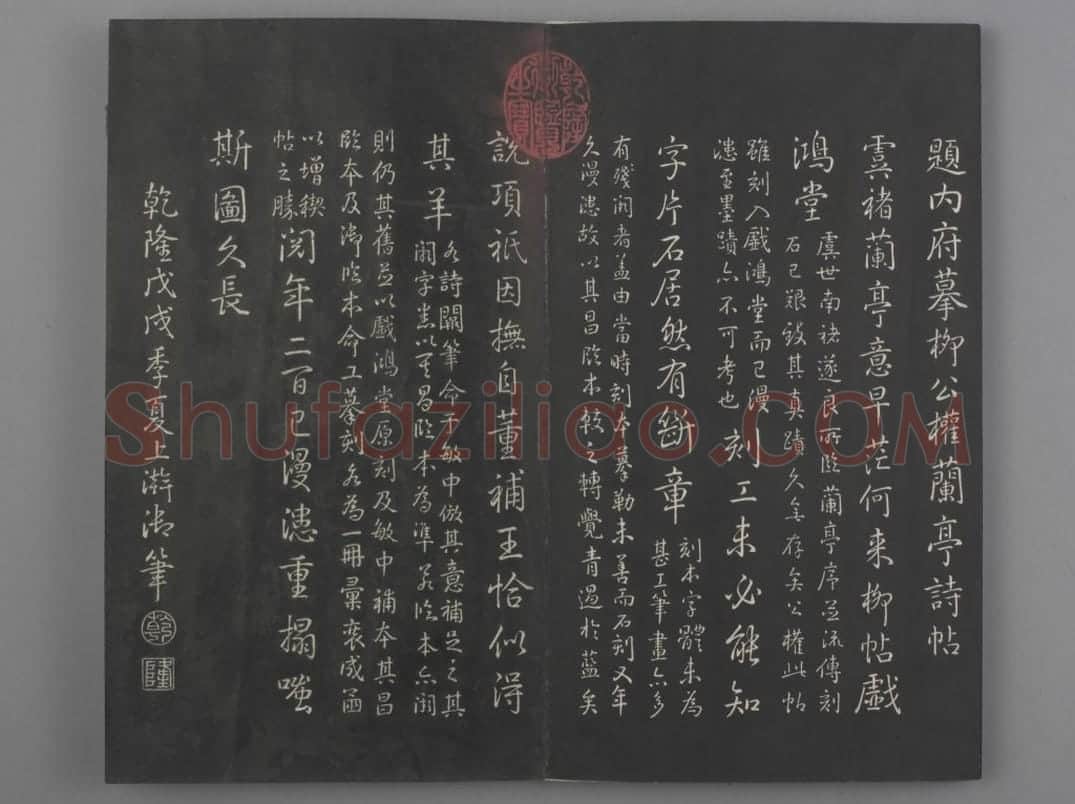 題内府摹柳公權蘭亭詩帖
虞褚蘭亭意早茫何来柳帖戲
鴻堂
虞世南褚遂良所臨蘭亭序並流傳刻
石已艱致其真蹟久無存矣公權此帖
雖刻入戲鴻堂而已漫
漶至墨蹟亦不可考也
刻工未必能知
字片石居然有斷章
刻本字體未為
甚工筆畫亦多
有殘闕者蓋由當時刻本摹勒未善而石刻又年
久漫漶故以其昌臨本較之轉覺青過於藍矣
說項祇因撫自董補王恰似得
其羊
各詩闕筆命于敏中倣其意補足之其
闕字悉以其昌臨本為準若臨本亦闕
則仍其舊並以戲鴻堂原刻及敏中補本其昌
臨本及御臨本命工摹刻各為一冊彙裒成函
以增稧
帖之勝
閱年二百已漫漶重搨嗤
斯圖久長
乾隆戊戌季夏上澣御筆
乾
隆
乾隆御覽之寶
Shufaziliao.COM